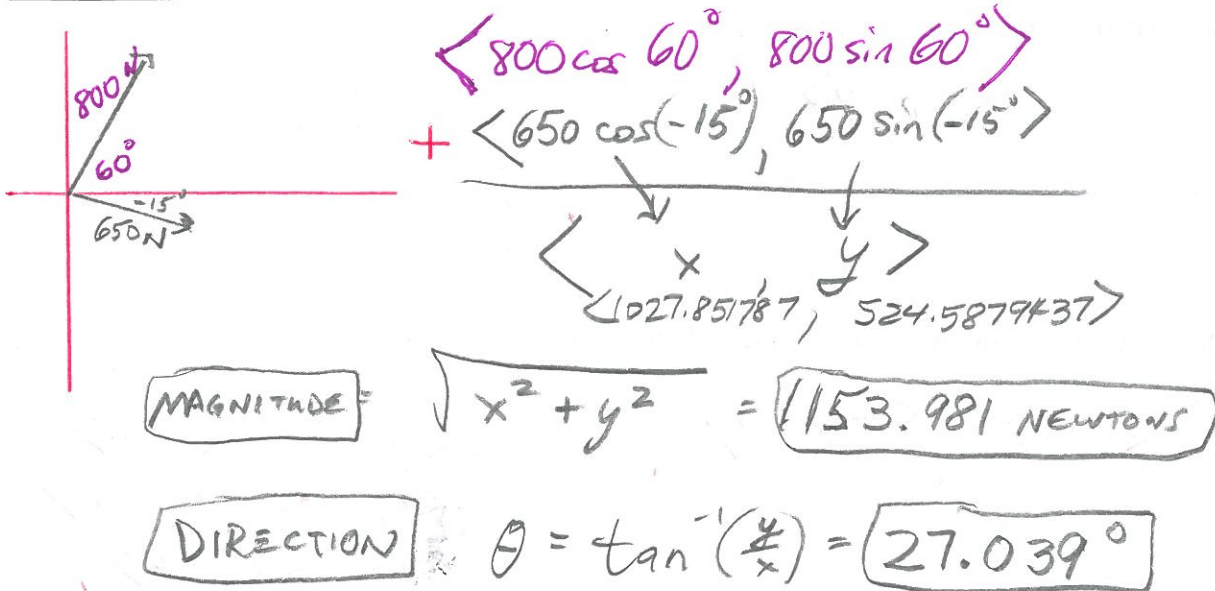 <800 cos 60°, 800 sin 60°>
800 N
60°
+ <650 cos(-15°), 650 sin(-15°>
-15°
650N
< x, y >
<1027.851787, 524.5879437>
MAGNITUDE = √x² + y² = 1153.981 NEWTONS
DIRECTION θ = tan⁻¹(y/x) = 27.039°